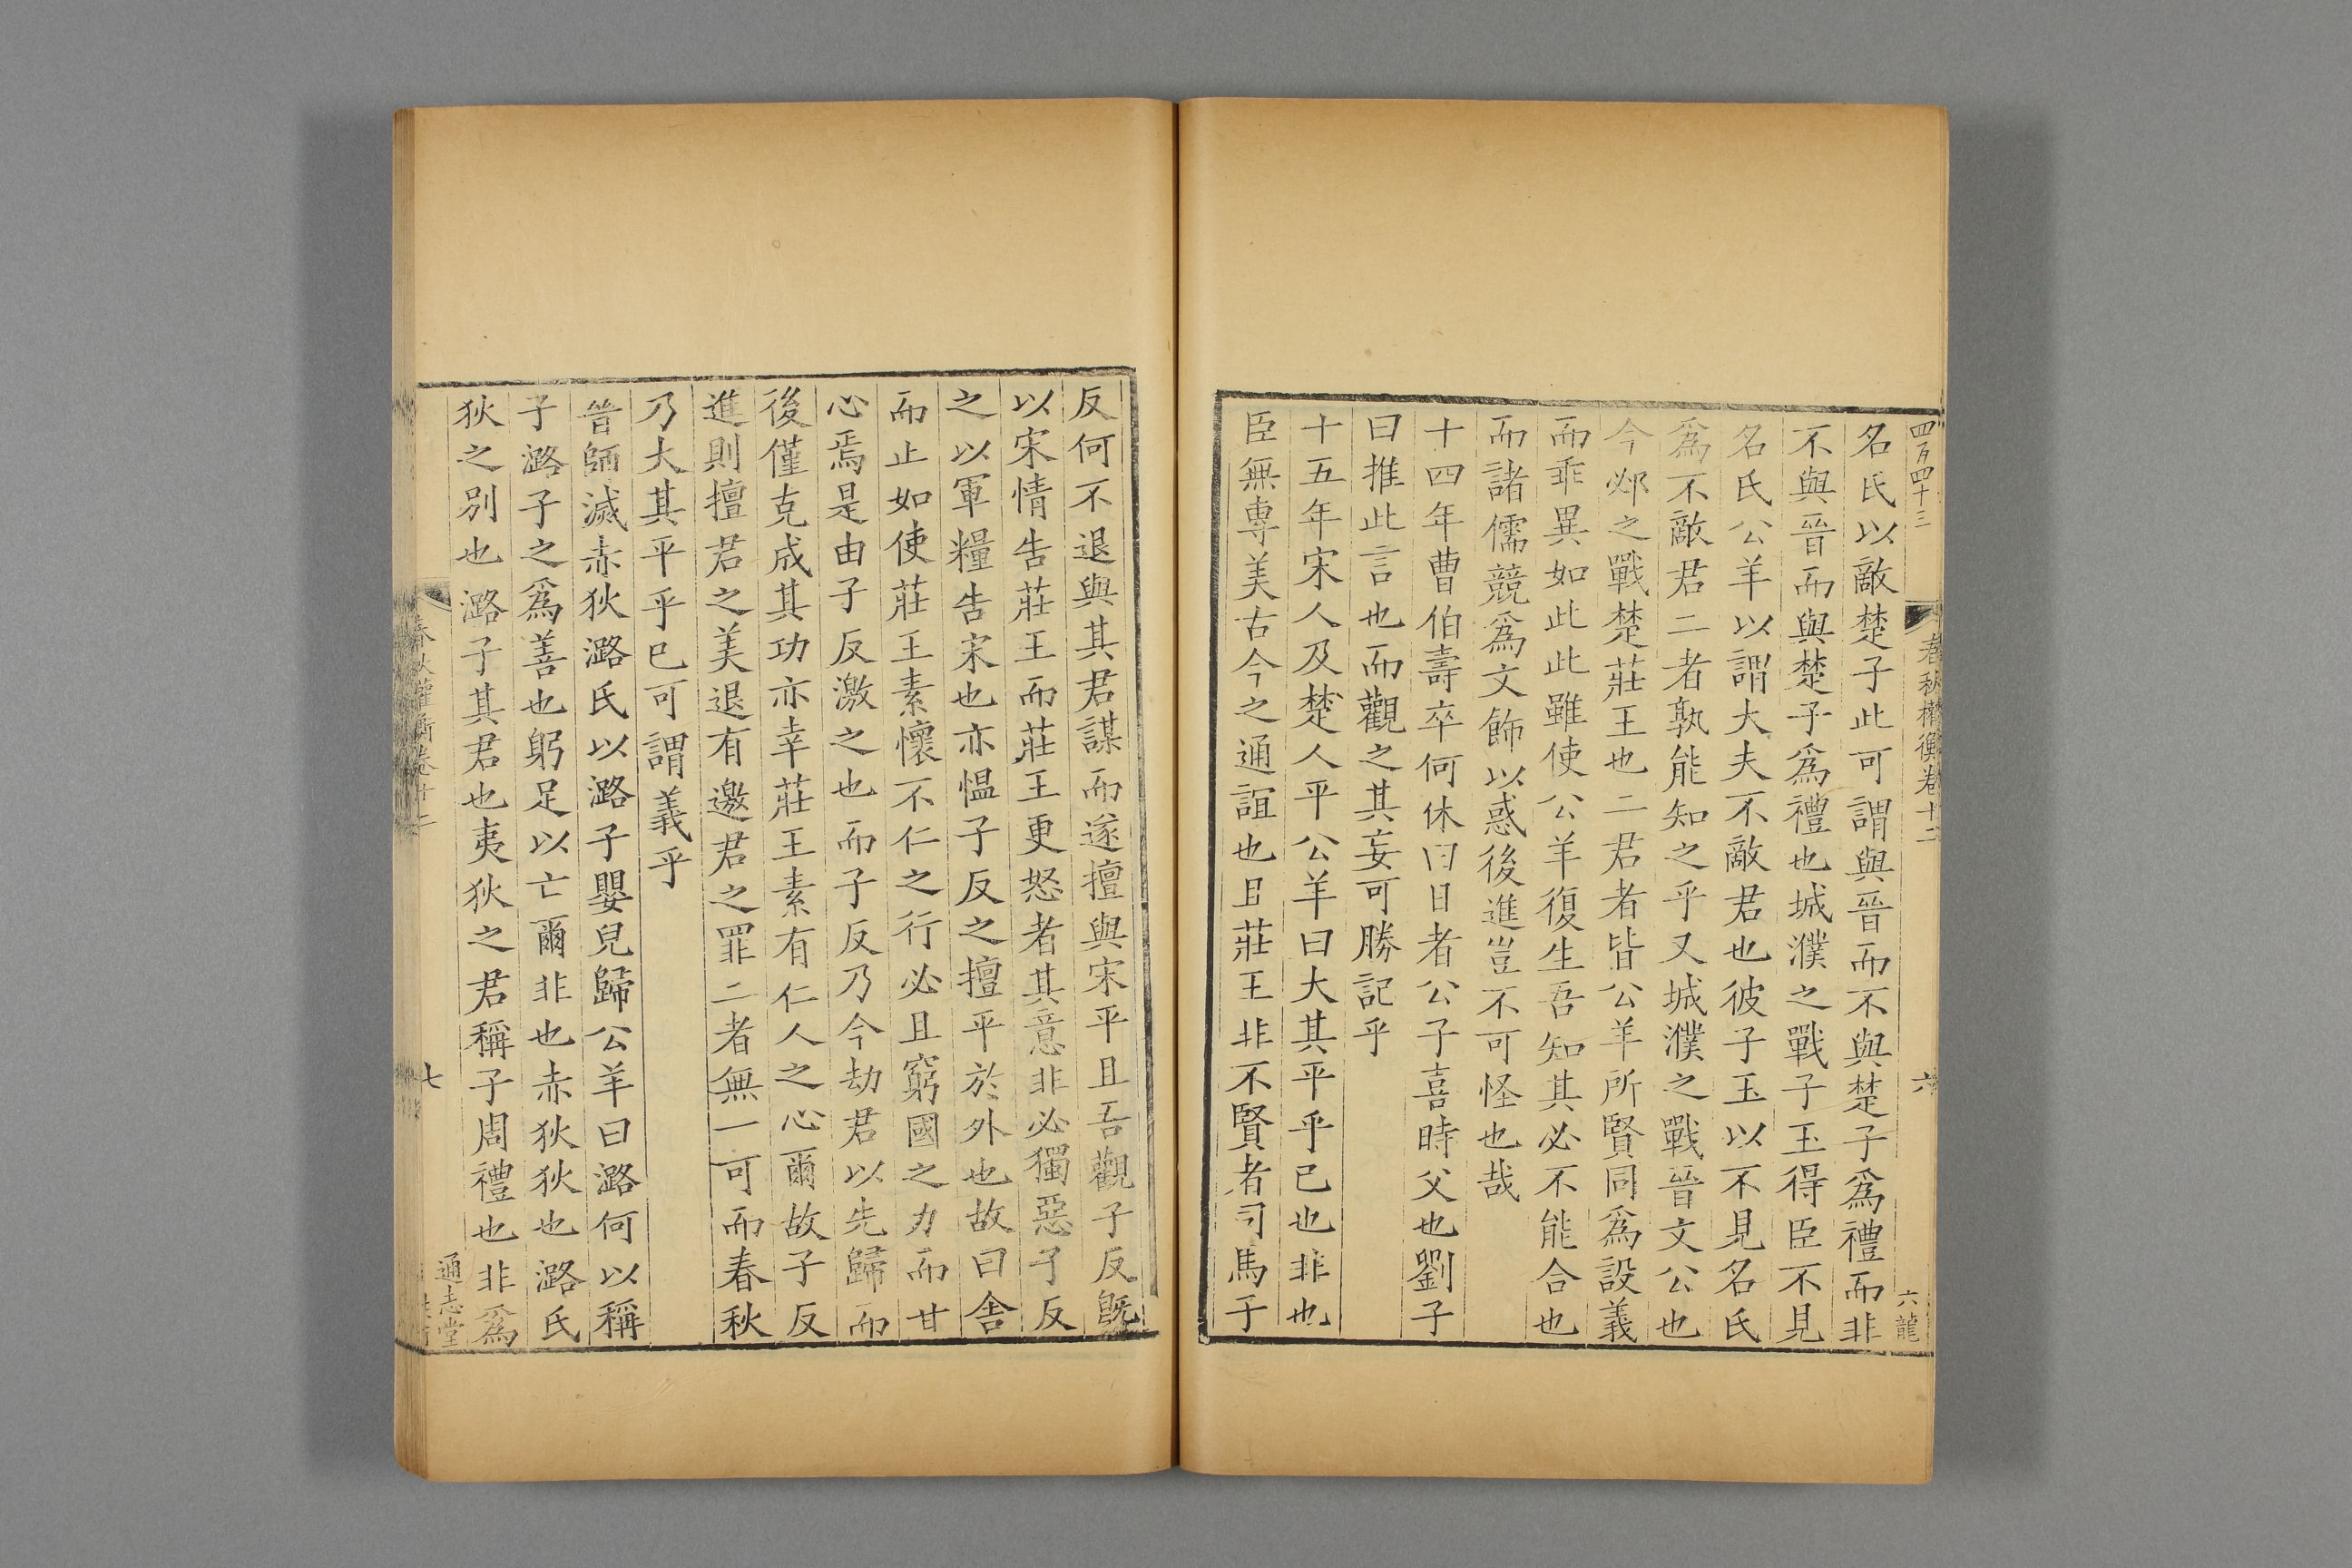 四百四十三 春秋權衡卷十二 六 六龍
名氏以敵楚子此可謂與晉而不與楚子爲禮而非
不與晉而與楚子爲禮也城濮之戰子玉得臣不見
名氏公羊以謂大夫不敵君也彼子玉以不見名氏
爲不敵君二者孰能知之乎又城濮之戰晉文公也
今邲之戰楚莊王也二君者皆公羊所賢同爲設義
而乖異如此此雖使公羊復生吾知其必不能合也
而諸儒競爲文飾以惑後進豈不可怪也哉
十四年曹伯壽卒何休曰日者公子喜時父也劉子
曰推此言也而觀之其妄可勝記乎
十五年宋人及楚人平公羊曰大其平乎已也非也
臣無專美古今之通誼也且莊王非不賢者司馬子
反何不退與其君謀而遂擅與宋平且吾觀子反旣
以宋情告莊王而莊王更怒者其意非必獨惡子反
之以軍糧告宋也亦愠子反之擅平於外也故曰舍
而止如使莊王素懷不仁之行必且窮國之力而甘
心焉是由子反激之也而子反乃今劫君以先歸而
後僅克成其功亦幸莊王素有仁人之心爾故子反
進則擅君之美退有邀君之罪二者無一可而春秋
乃大其平乎已可謂義乎
晉師滅赤狄潞氏以潞子嬰兒歸公羊曰潞何以稱
子潞子之爲善也躬足以亡爾非也赤狄狄也潞氏
狄之別也潞子其君也夷狄之君稱子周禮也非爲
春秋權衡卷十二 七 通志堂